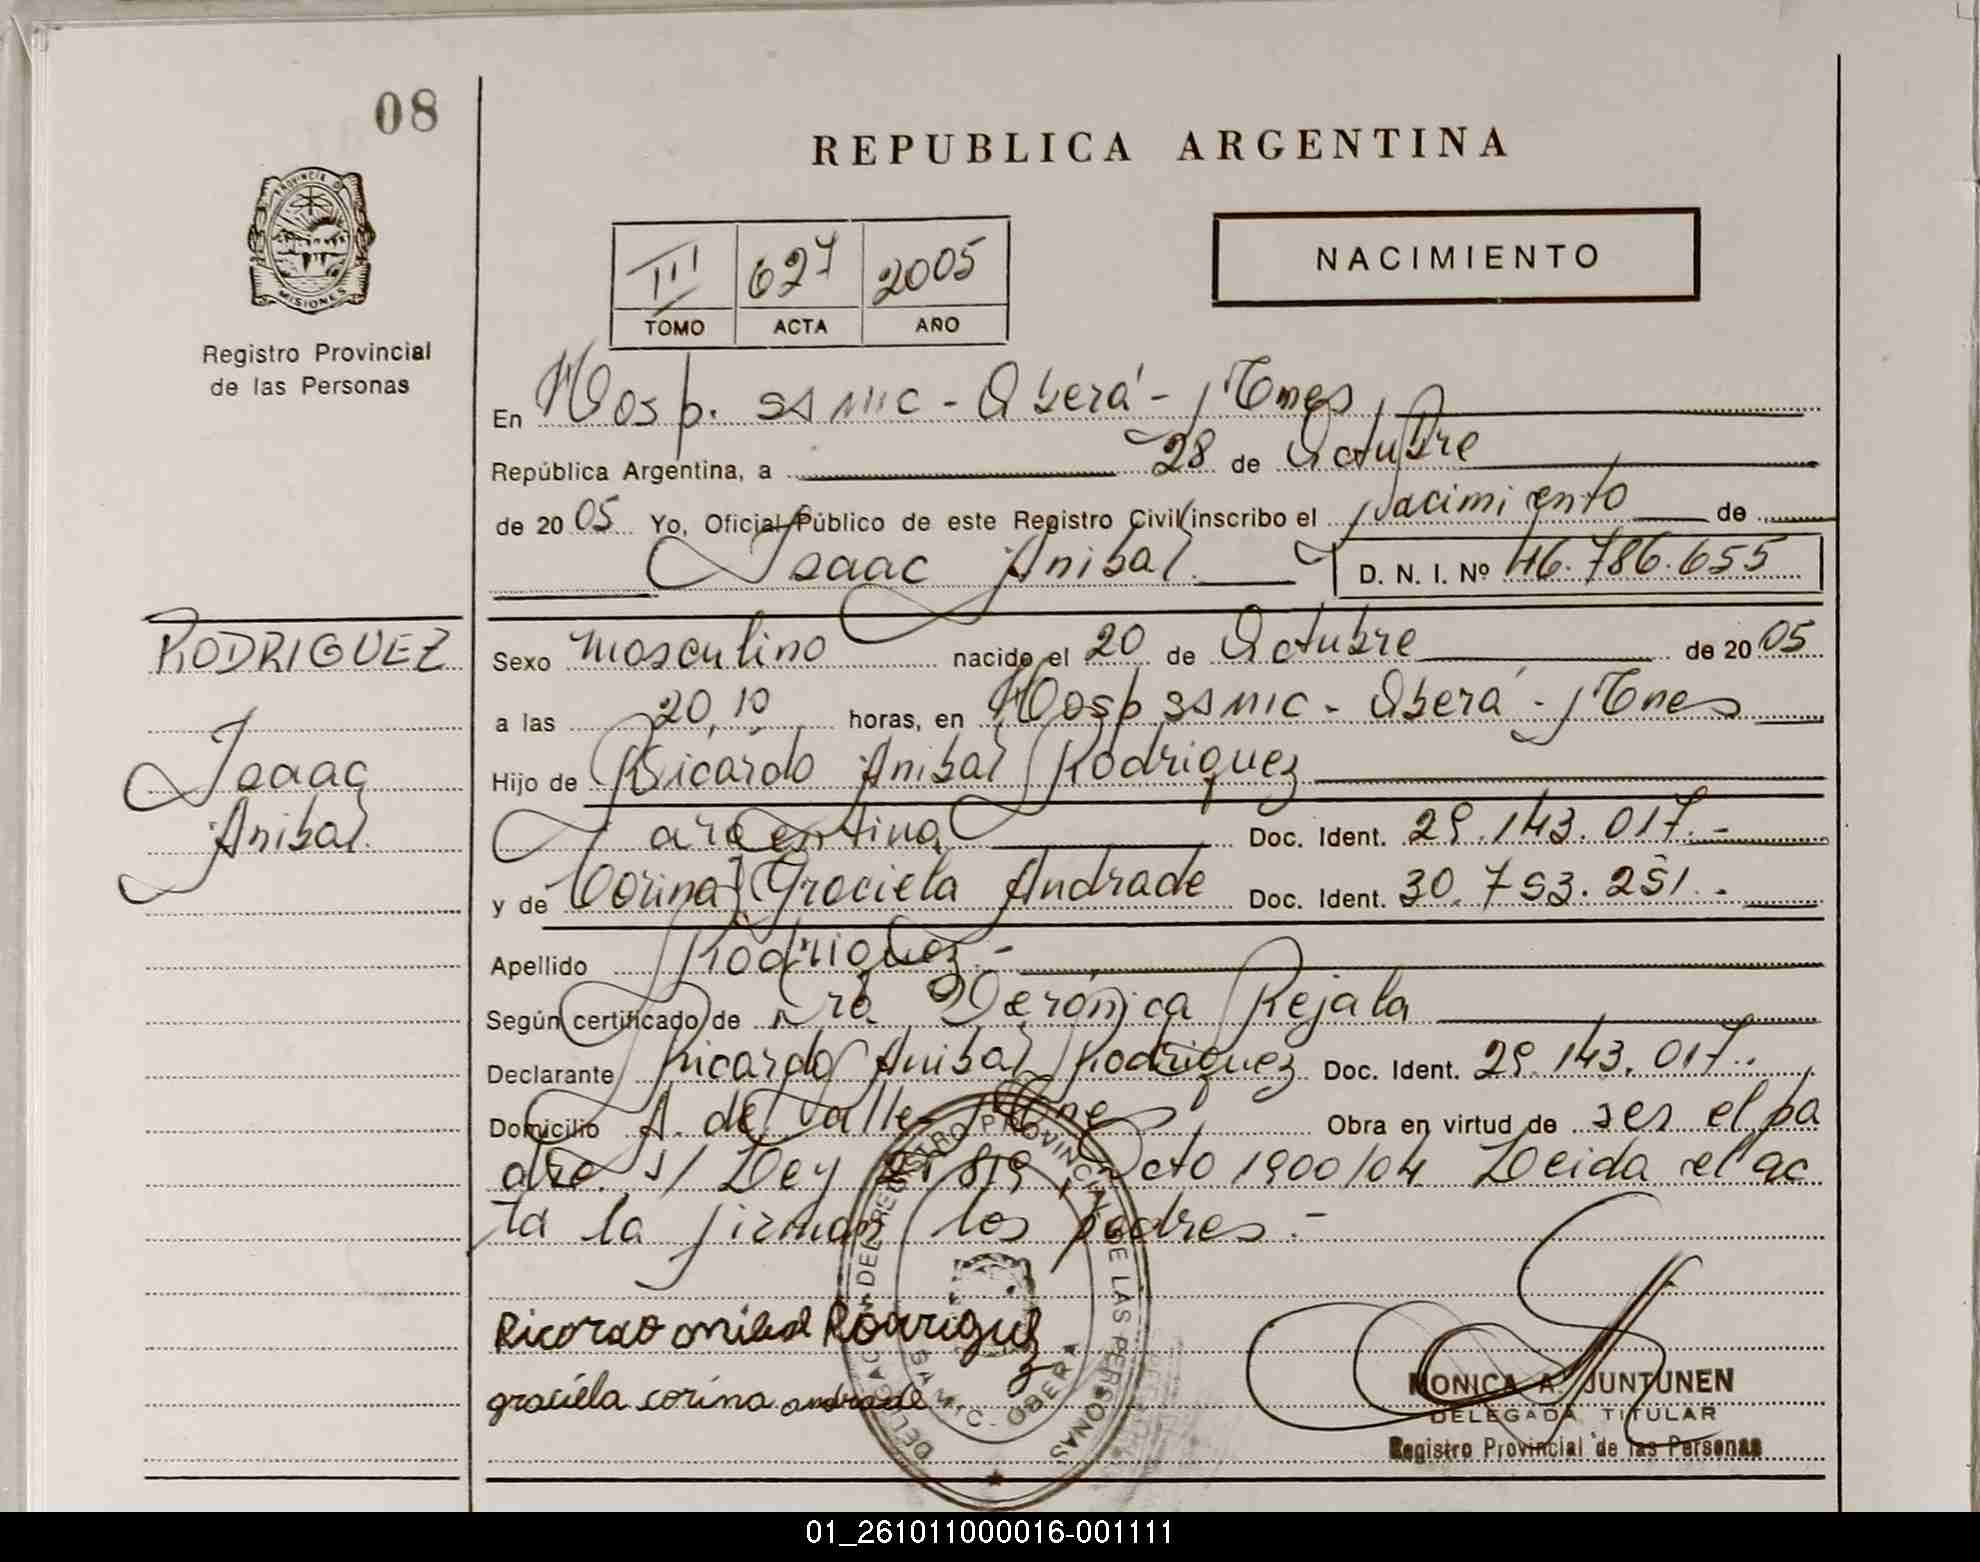 08
REPUBLICA ARGENTINA
PROVINCIA DE
MISIONES
Registro Provincial
de las Personas
III 627 2005
TOMO ACTA AÑO
NACIMIENTO
En Hosp. SAMIC - Oberá - Mnes
República Argentina, a 28 de Octubre
de 20 05 Yo, Oficial Público de este Registro Civil inscribo el Nacimiento de
Isaac Anibal D. N. I. Nº 46.786.655
RODRIGUEZ
Isaac
Anibal
Sexo masculino nacido el 20 de Octubre de 20 05
a las 20,10 horas, en Hosp SAMIC - Oberá - Mnes
Hijo de Ricardo Anibal Rodriguez
argentina Doc. Ident. 29.143.017.-
y de Corina Graciela Andrade Doc. Ident. 30.793.251.-
Apellido Rodriguez -
Según certificado de Dra Verónica Rejala
Declarante Ricardo Anibal Rodriguez Doc. Ident. 29.143.017.
Domicilio A. del Valle Mnes Obra en virtud de ser el pa
dre s/ Ley 819 Dcto 1900/04 Leida el ac
ta la firman los padres.-
Ricardo anibal Rodriguez
graciela corina andrade
DELEGACION DEL REGISTRO PROVINCIAL DE LAS PERSONAS
SAMIC - OBERA
MONICA A. JUNTUNEN
DELEGADA TITULAR
Registro Provincial de las Personas
01_261011000016-001111